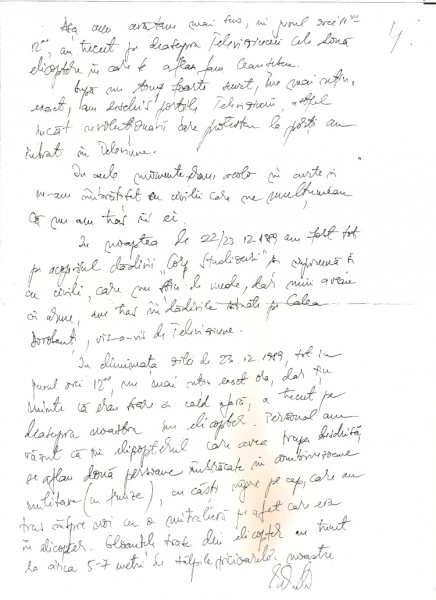 Așa cum arătam mai sus, în jurul orei 11⁰⁰
12⁰⁰, au trecut pe deasupra Televiziunii cele două
elicoptere în care se aflau fam Ceaușescu.
După un timp foarte scurt, nu mai rețin
exact, am deschis porțile Televiziunii, astfel
încât revoluționarii care protestau la porți au
intrat în Televiziune.
În acele momente eram acolo în curte și
ne-am îmbrățișat cu civilii care ne mulțumeau
că nu am tras în ei.
În noaptea de 22/23.12.1989 am fost tot
pe acoperișul clădirii "Corp Studiouri" și împreună
cu civili, care nu știu de unde, dar unii aveau
și arme, am tras în clădirile pe Calea
Dorobanți, vis-a-vis de Televiziune.
În dimineața zilei de 23.12.1989, tot în
jurul orei 12⁰⁰, nu mai rețin exact ora, dar țin
minte că era foarte cald afară, a trecut pe
deasupra noastră un elicopter. Personal am
văzut că în elicopterul care avea trapa deschisă
se aflau două persoane îmbrăcate în combinezoane
militare (în fâșie), cu căști negre pe cap, care au
tras înspre noi cu o mitralieră pe afet care era
în elicopter. Gloanțele trase din elicopter au trecut
la circa 5-7 metri de tălpile picioarelor noastre
4.